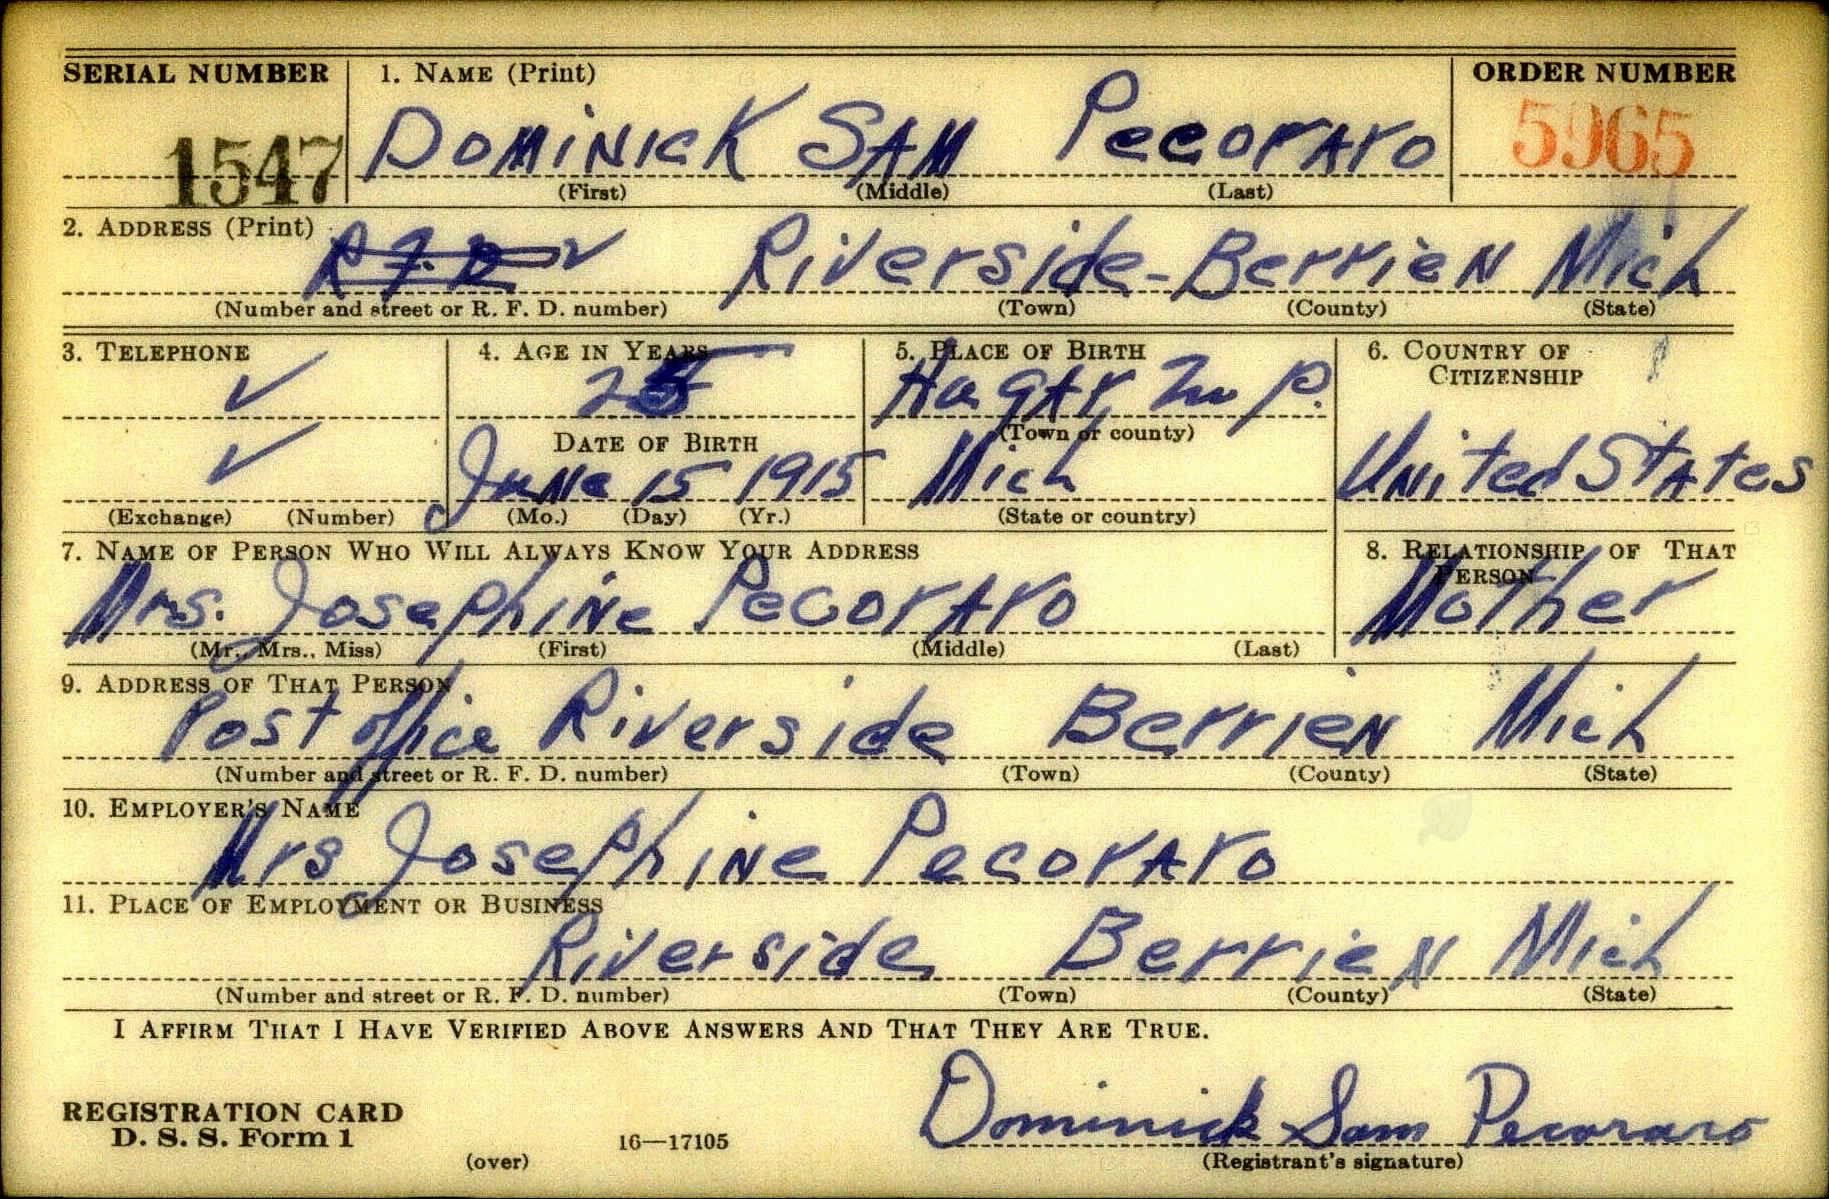 SERIAL NUMBER 1. NAME (Print) ORDER NUMBER
1547 DOMINICK SAM PecorAro 5965
(First) (Middle) (Last)
2. ADDRESS (Print)
R.F.D. Riverside - BerrieN Mich
(Number and street or R. F. D. number) (Town) (County) (State)
3. TELEPHONE 4. AGE IN YEARS 5. PLACE OF BIRTH 6. COUNTRY OF CITIZENSHIP
25 HagAr P.
DATE OF BIRTH (Town or county)
JuNe 15 1915 Mich UNited StAtes
(Exchange) (Number) (Mo.) (Day) (Yr.) (State or country)
7. NAME OF PERSON WHO WILL ALWAYS KNOW YOUR ADDRESS 8. RELATIONSHIP OF THAT PERSON
Mrs. JosephiNe PecorAro Mother
(Mr., Mrs., Miss) (First) (Middle) (Last)
9. ADDRESS OF THAT PERSON
Post office Riverside BerrieN Mich
(Number and street or R. F. D. number) (Town) (County) (State)
10. EMPLOYER'S NAME
Mrs JosephiNe PecorAro
11. PLACE OF EMPLOYMENT OR BUSINESS
Riverside BerrieN Mich
(Number and street or R. F. D. number) (Town) (County) (State)
I AFFIRM THAT I HAVE VERIFIED ABOVE ANSWERS AND THAT THEY ARE TRUE.
REGISTRATION CARD
D. S. S. Form 1 16—17105 Dominick Sam Pecoraro
(over) (Registrant's signature)